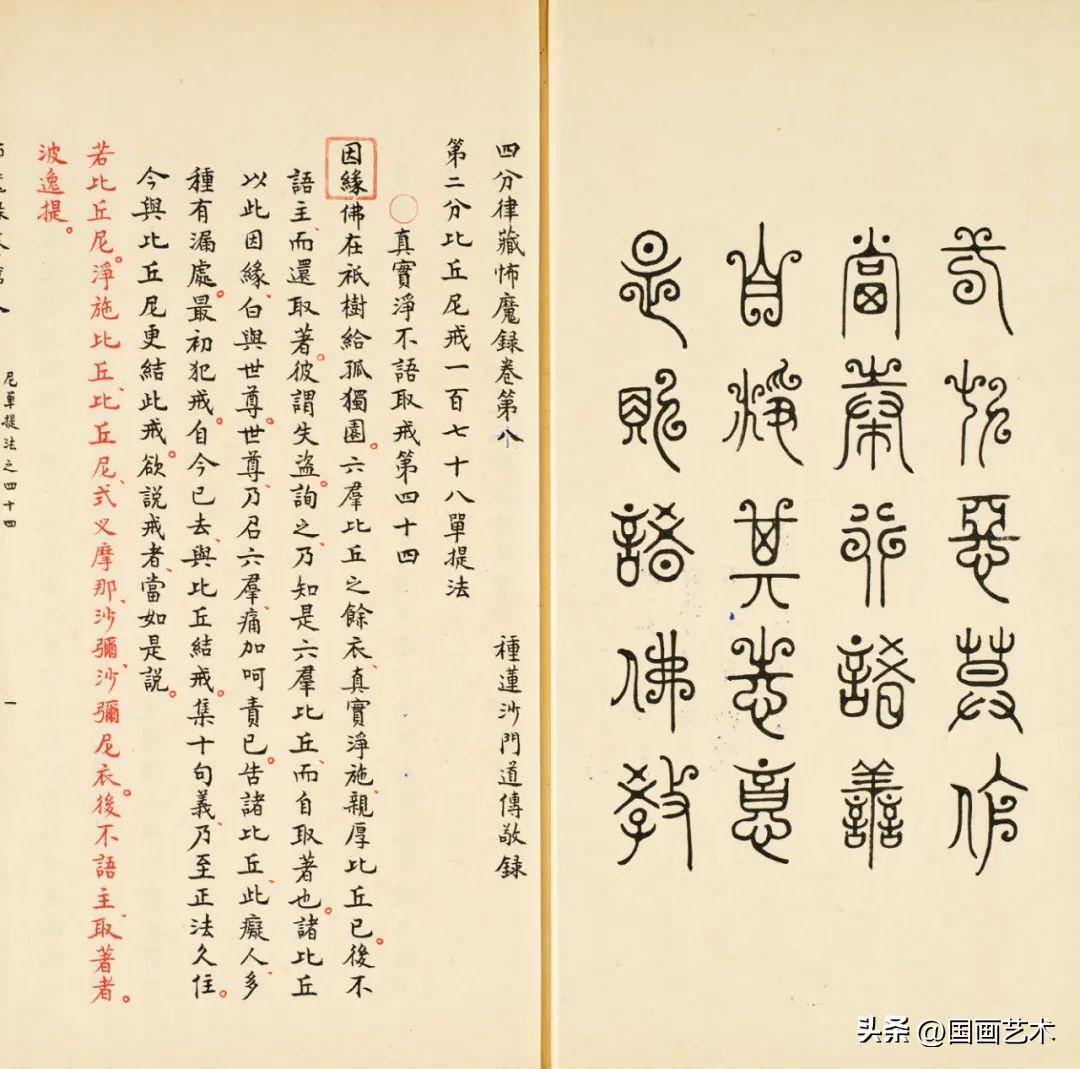 弌切惡莫作
當奉行諸善
自淨其志意
是則諸佛教
四分律藏怖魔録卷第八 種蓮沙門道傳敬録
第二分比丘尼戒一百七十八單提法
○真實淨不語取戒第四十四
因緣佛在祇樹給孤獨園。六羣比丘之餘衣、真實淨施、親厚比丘已。後不
語主、而還取著。彼謂失盜。詢之、乃知是六羣比丘、而自取著也。諸比丘
以此因緣、白與世尊。世尊、乃召六羣、痛加呵責已。告諸比丘、此癡人、多
種有漏處。最初犯戒。自今已去、與比丘結戒。集十句義、乃至正法久住。
今與比丘尼更結此戒。欲説戒者、當如是説。
若比丘尼。淨施比丘、比丘尼、式叉摩那、沙彌、沙彌尼衣。後不語主、取著者。
波逸提。
尼單提法之四十四 一
头条 @国画艺术